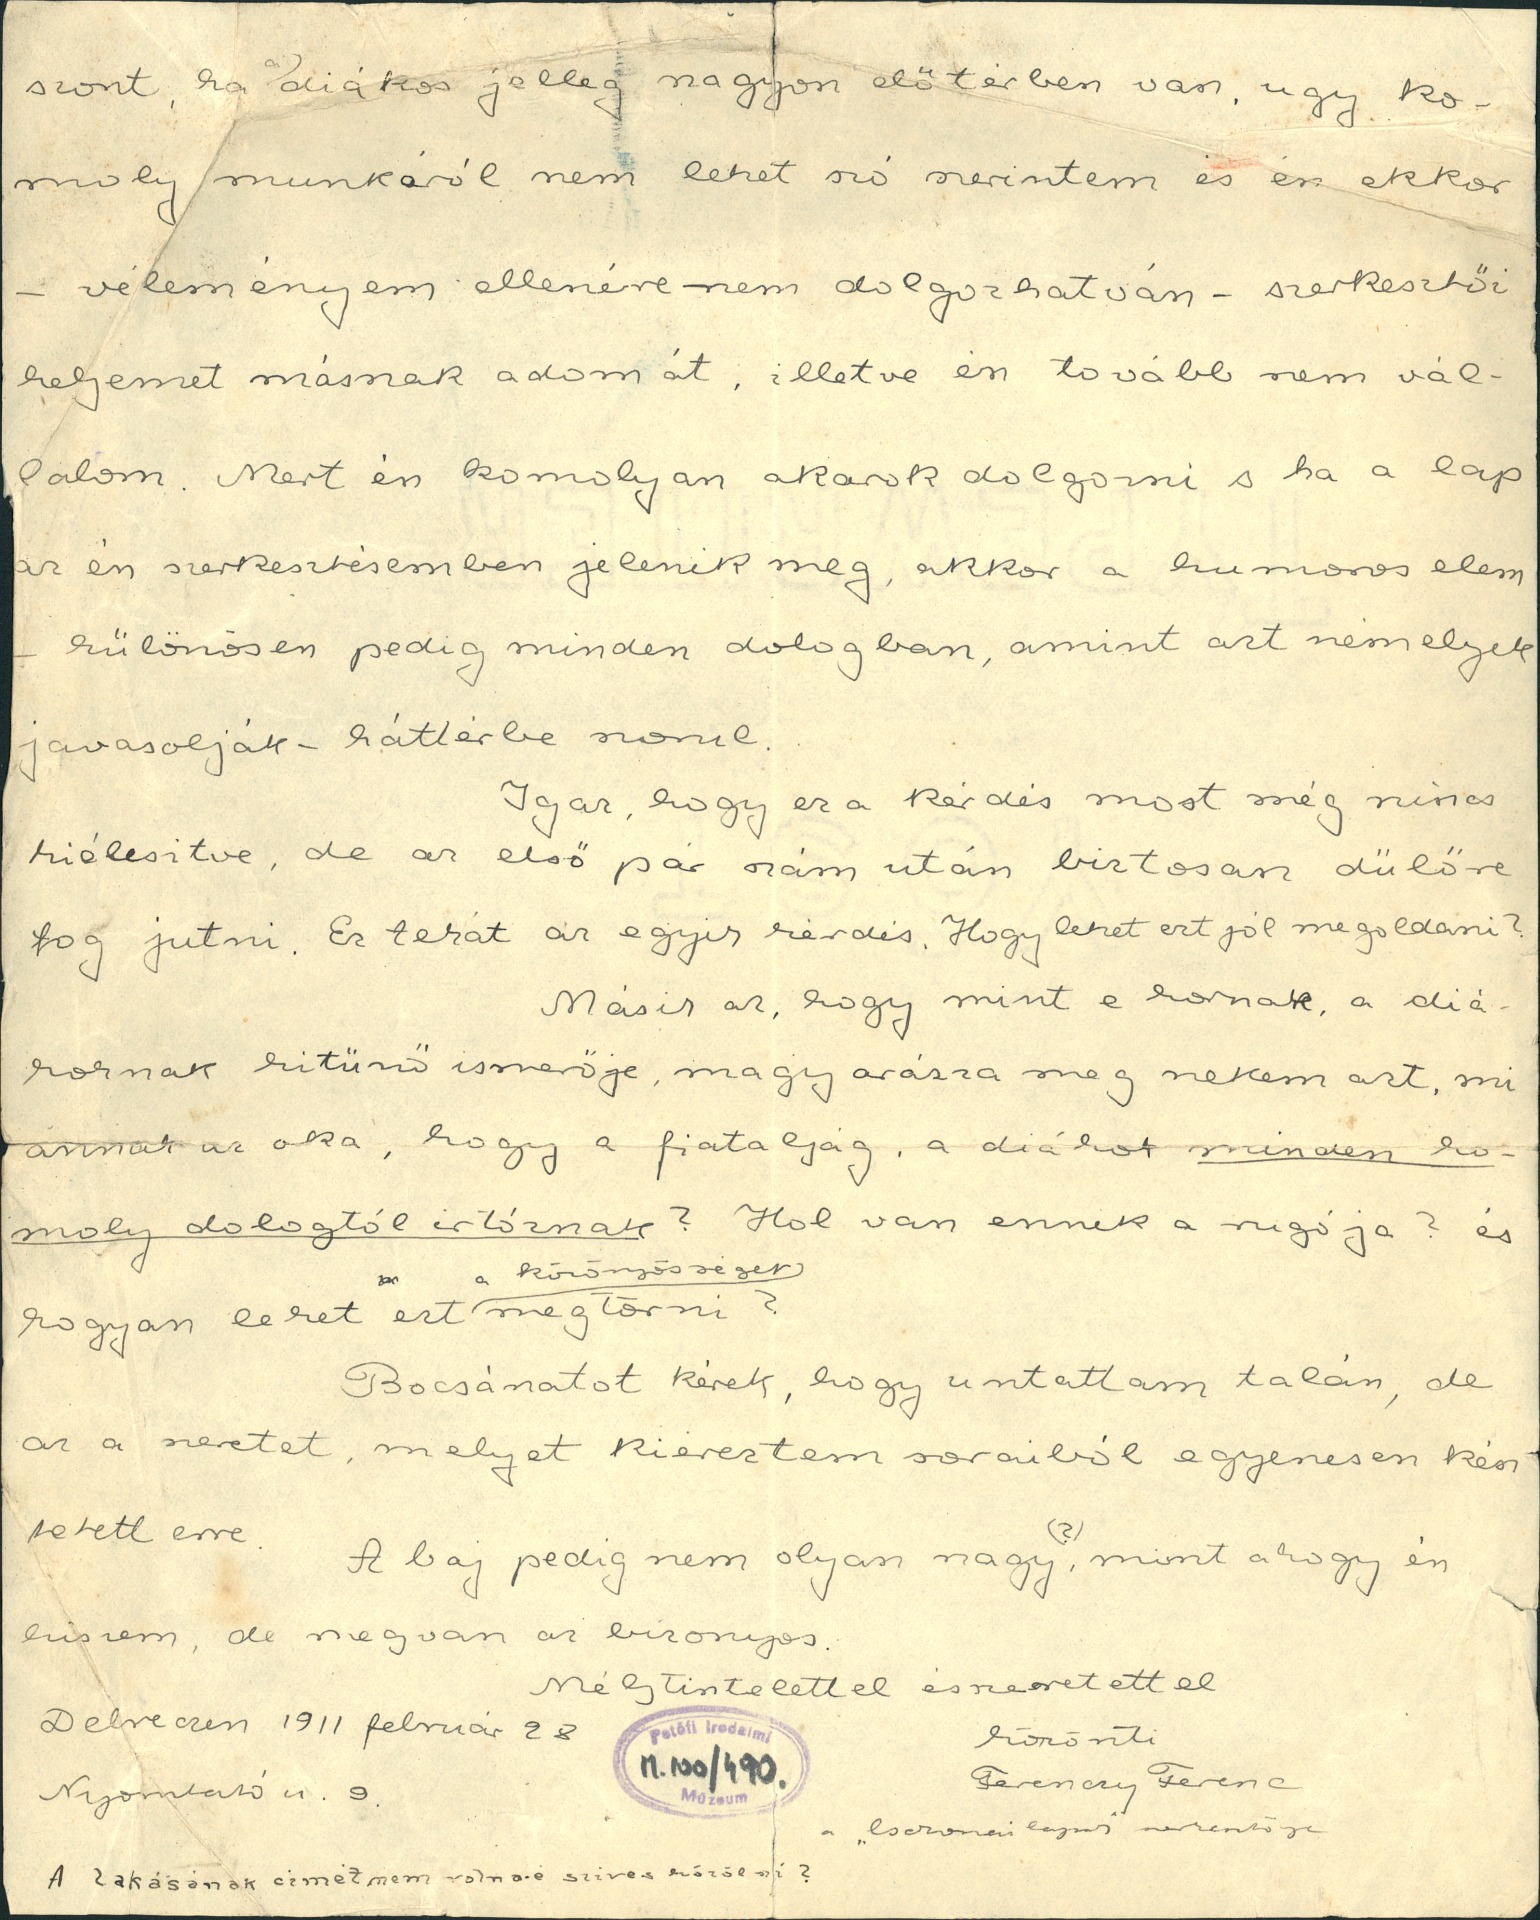 szont, ha a diákos jelleg nagyon előtérben van, ugy ko-
moly munkáról nem lehet szó szerintem és én akkor
– véleményem ellenére nem dolgozhatván – szerkesztői
helyemet másnak adom át, illetve én tovább nem vál-
lalom. Mert én komolyan akarok dolgozni s ha a lap
az én szerkesztésemben jelenik meg, akkor a humoros elem
– különösen pedig minden dologban, amint azt némelyek
javasolják – háttérbe szorul.
Igaz, hogy ez a kérdés most még nincs
kiélesitve, de az első pár szám után biztosan dülőre
fog jutni. Ez tehát az egyik kérdés. Hogy lehet ezt jól megoldani?
Másik az, hogy mint e kornak, a diá-
kornak kitünő ismerője, magyarázza meg nekem azt, mi
annak az oka, hogy a fiatalság, a diákok minden ko-
moly dologtól irtóznak? Hol van ennek a rugója? és
hogyan lehet ezt a közönyösséget megtörni?
Bocsánatot kérek, hogy untattam talán, de
az a szeretet, melyet kiéreztem soraiból egyenesen kész-
tetett erre.
A baj pedig nem olyan nagy (?), mint ahogy én
hiszem, de megvan az bizonyos.
Mély tisztelettel és szeretettel
Debreczen 1911 február 28
köszönti
Nyomtató u. 9.
Ferenczy Ferenc
a „Csokonai lapok" szerkesztője
Petőfi Irodalmi
M.100/490.
Múzeum
A lakásának címét nem volna-e szives közölni?